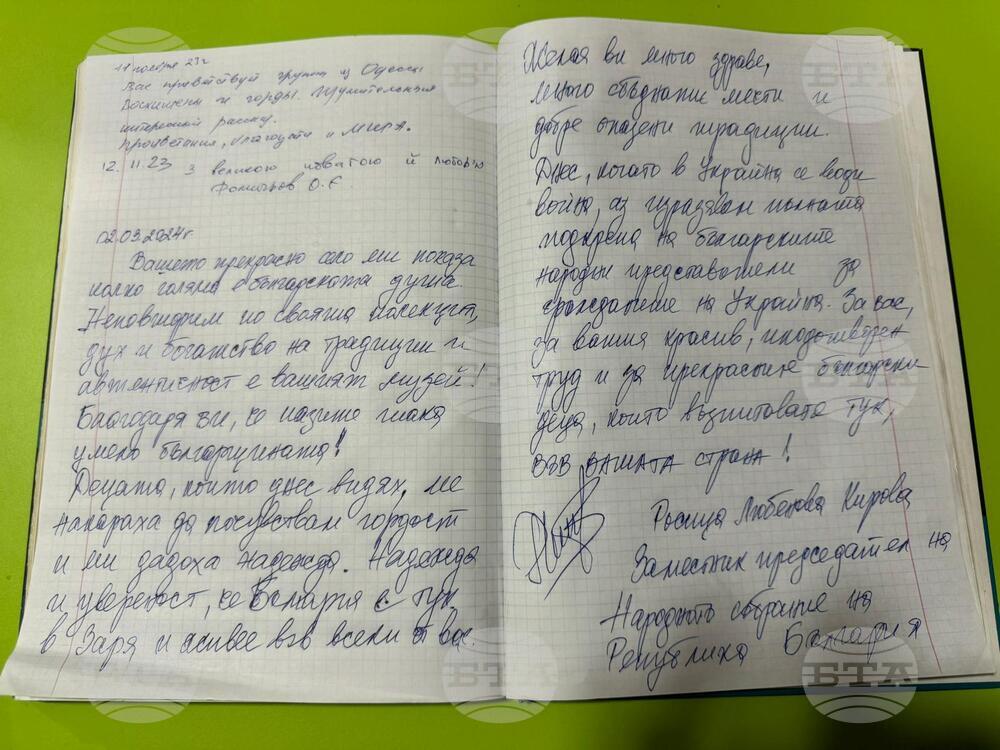 11 ноября 23г
Вас приветствует группа из Одессы
Восхищены и горды.
интересной
Процветания, благодати и МИРА.
12.11.23 З великою повагою й любов'ю
О.Є.
02.03.2024г.
Вашето прекрасно село ми показа
колко голяма е българската душа.
Неповторим по своята колекция,
дух и богатство на традиции и
автентичност е вашият музей!
Благодаря ви, че пазите така
умело българщината!
Децата, които днес видях, ме
накараха да почувствам гордост
и ми дадоха надежда. Надежда
и увереност, че България е тук
в Заря и живее във всеки от вас.
Желая ви много здраве,
много сбъднати мечти и
добре опазени традиции.
Днес, когато в Украйна се води
война, аз изразявам пълната
подкрепа на българските
народни представители за
гражданите на Украйна. За вас,
за вашия красив, плодотворен
труд и за прекрасните български
деца, които възпитавате тук,
във вашата страна!
Росица Любенова Кирова
Заместник председател на
Народното събрание на
Република България
БТА